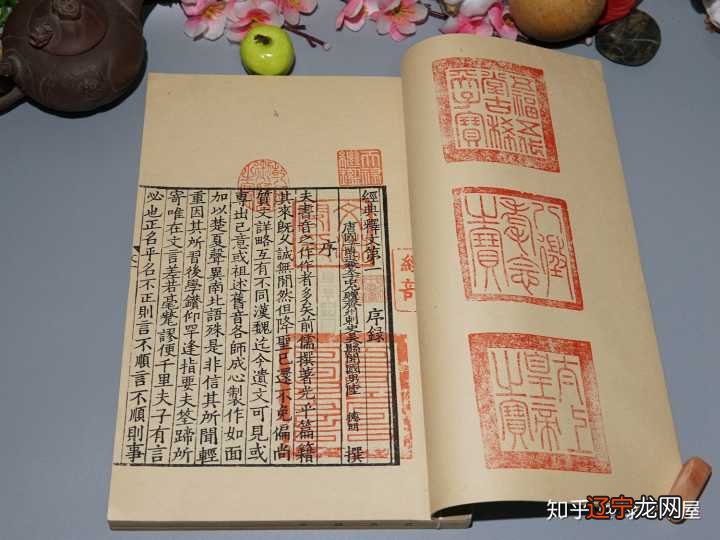 五福五代
堂古稀
天子寶
八徵
耄念
之寶
太上
皇帝
之寶
天祿
繼鑑
經典釋文第一 序錄
唐國子博士兼太子中允贈齊州刺史吳縣開國男陸 德明 撰
序
夫書音之作作者多矣前儒撰著光乎篇籍
其來既久誠無閒然但降聖已還不免偏尚
質文詳略互有不同漢魏迄今遺文可見或
專出己意或祖述舊音各師成心製作如面
加以楚夏聲異南北語殊是非信其所聞輕
重因其所習後學鑽仰罕逢指要夫筌蹄所
寄唯在文言差若毫氂謬便千里夫子有言
必也正名乎名不正則言不順言不順則事
知乎
辽宁龙网屋